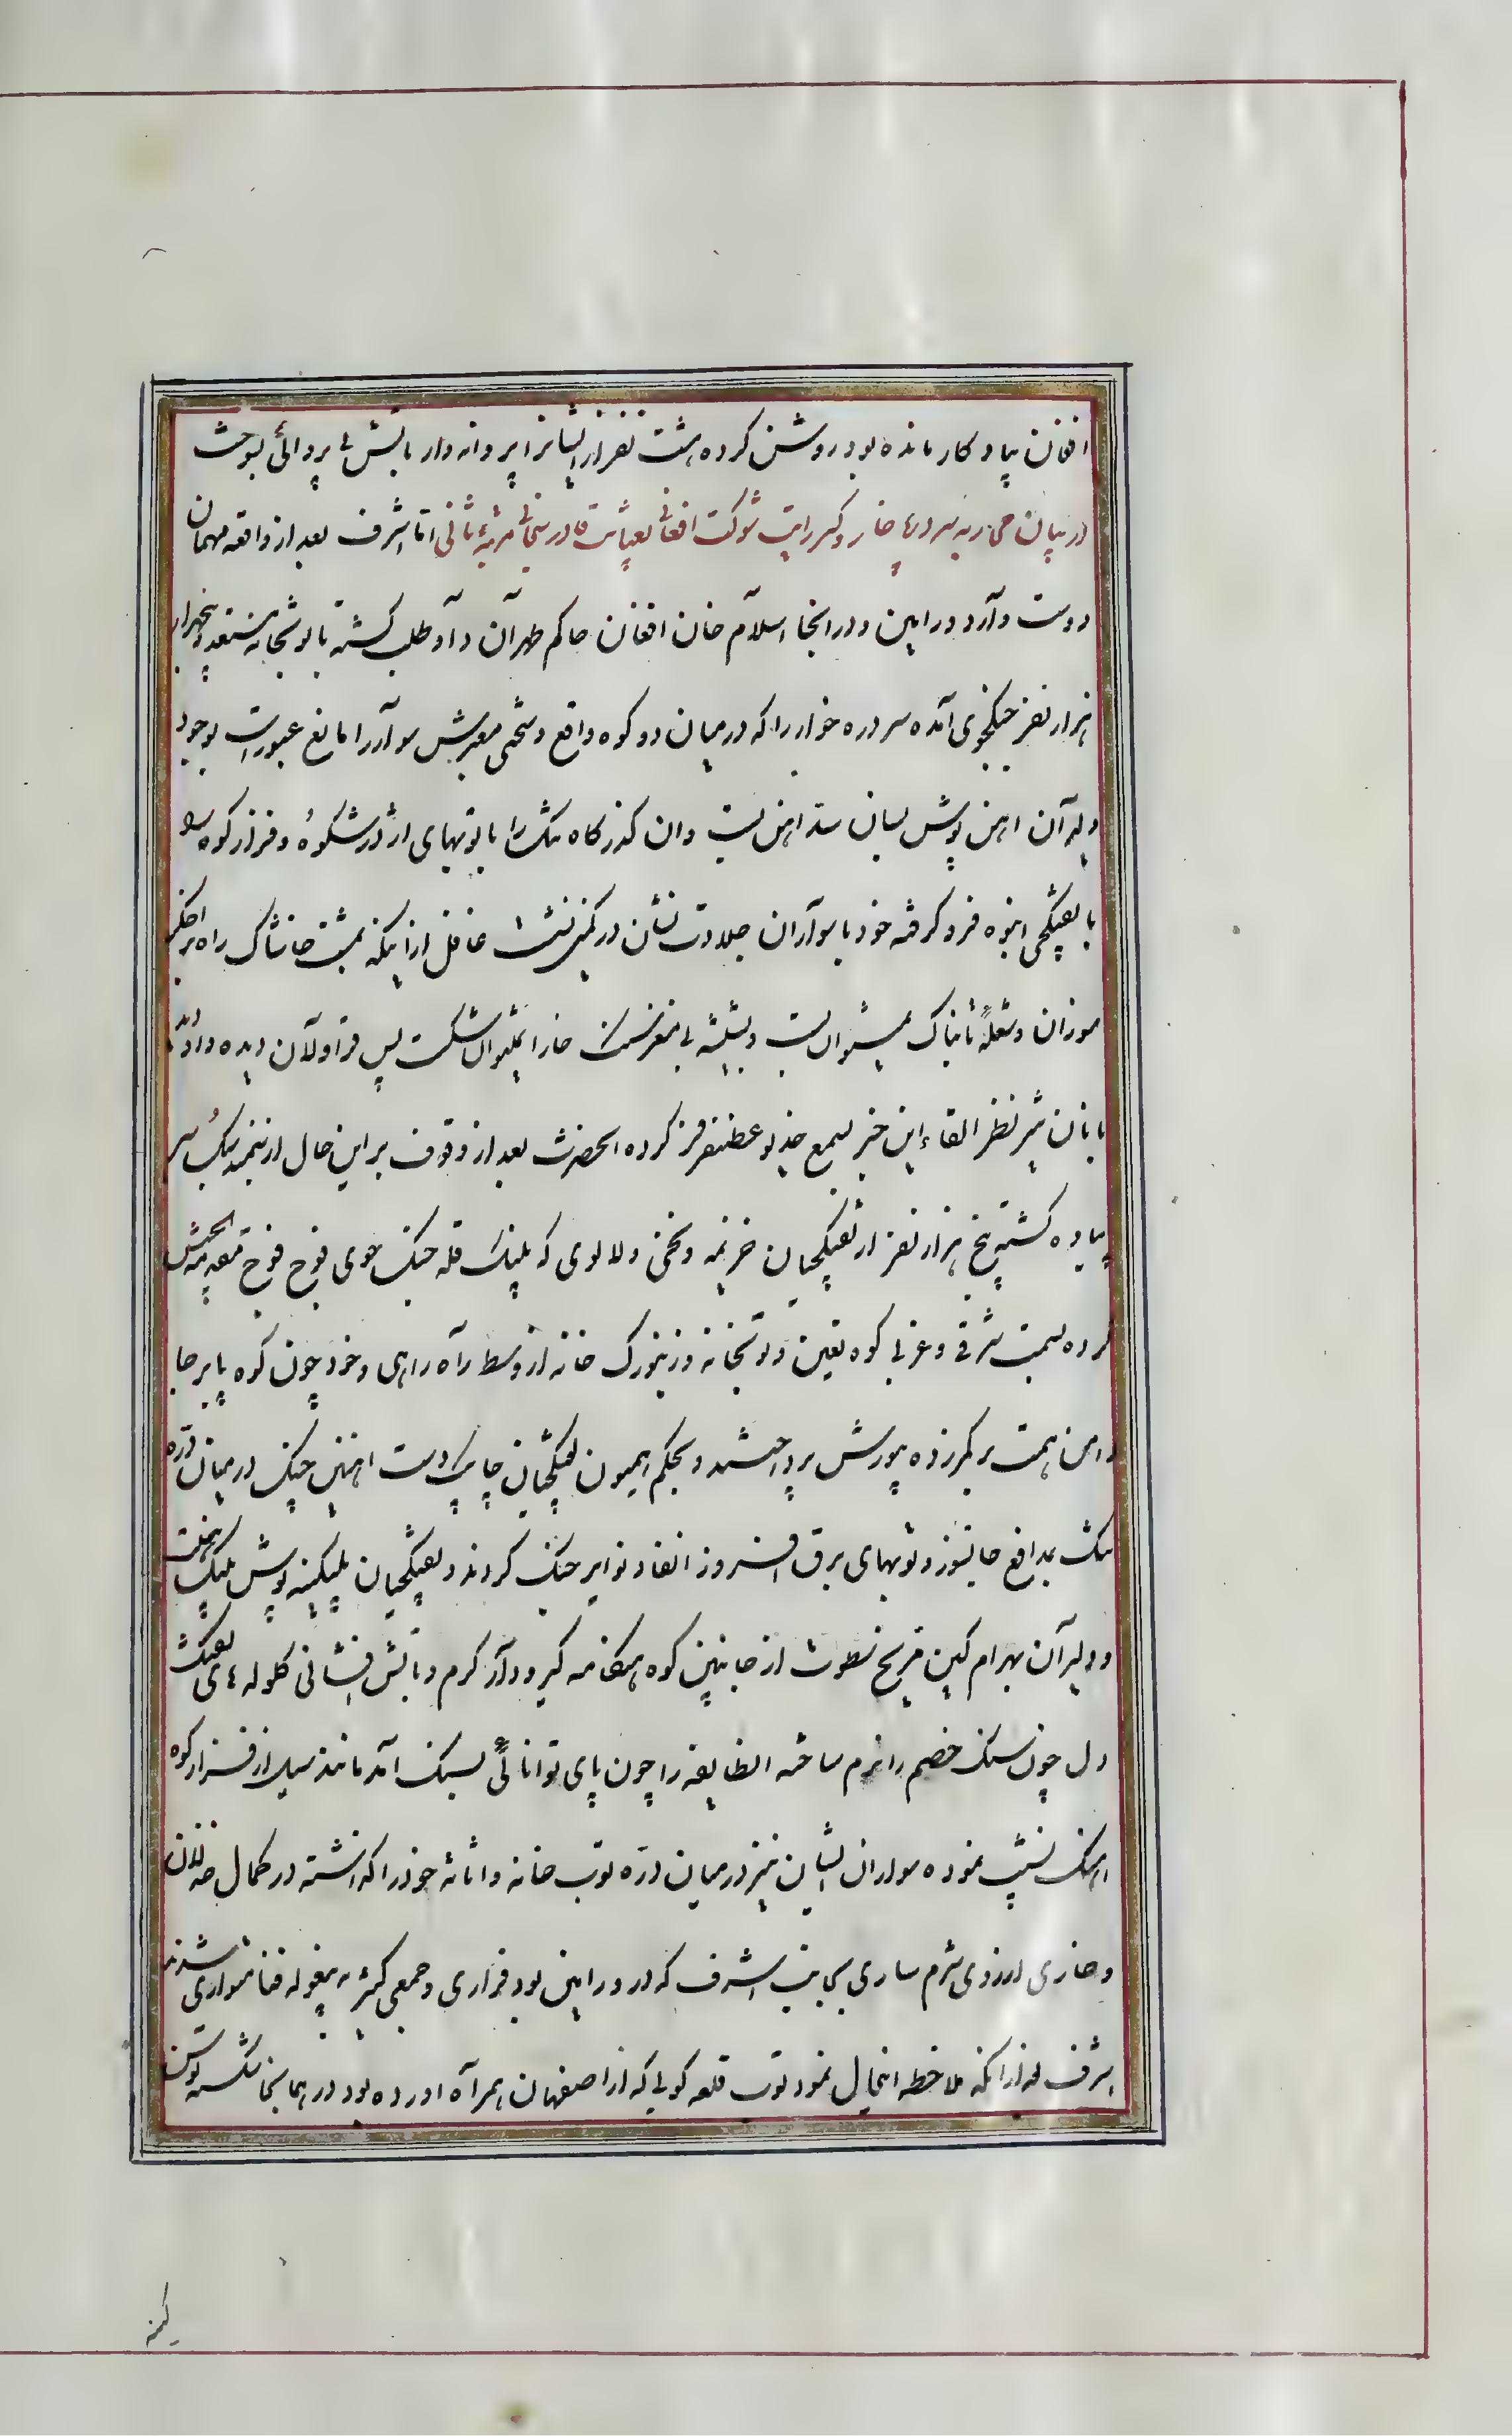 افغان بیادکار مانده بود روشن کرده هشت نفر از ایشانرا پروانه وار بآتش بی پروائی بسوخت
در بیان محاربه سردره خار و کسر رایت شوکت افغان بعنایت قادر سبحان مرتبهٔ ثانی اما اشرف بعد از واقعه مهمان
دوست وارد ورامین و در انجا اسلام خان افغان حاکم طهران داوطلب کشته با توپخانه مستعد و پنجهزار
هزار نفر جنکجوی آمده سر دره خوار را که در میان دو کوه واقع و سختی معبرش سوار را مانع عبور است بوجود
دلیران اهن پوش بسان سد اهن بست وان کذرکاه تنک را با توپهای اژدر شکوه و فراز کوه را
با تفنکچی انبوه فرو کرفته خود با سواران جلادت نشان در کمین نشست غافل از اینکه بمشت خاشاک راه بر اخکر
سوزان و شعلهٔ تابناک نمیتوان بست و بشیشه بی مغز سنک خارا نمیتوان شکست پس قراولان دیده و دانند
بانان تیز نظر القاء این خبر بسمع خدیو غضنفر فر کرده انحضرت بعد از وقوف بر این حال از سمند سبک سیر
پیاده کشته پنج هزار نفر از تفنکچیان خزیمه و نخعی و لالوی که پلنک قله جنک جوی فوج فوج مقدمة الجیش
کرده بسمت شرقی و غربی کوه تعیین و توپخانه و زنبورک خانه از وسط راه راهی و خود چون کوه پا برجا
دامن همت بر کمر زده بیورش پرداختند و بحکم همیون تفنکچیان چابک دست اهنین چنک در میان دره
تنک بمدافع جانسوز و توپهای برق افروز ایقاد نوایر جنک کردند و تفنکچیان پلنکینه پوش پلنک خصلت
و دلیران بهرام کین مریخ سطوت از جانبین کوه هنکامه کیر و دار کرم و بآتش افشانی کلوله های تفنک
دل چون سنک خصم را نرم ساخته انطایفه را چون پای توانائی بسنک آمد مانند سیل از فراز کوه
اهنک نشیب نموده سواران ایشان نیز در میان دره توپ خانه و اثاثه خود را کذاشته در کمال خذلان
و خاری ارزوی شرم ساری بجانب اشرف که در ورامین بود فراری و جمعی کثیر بمغوله فنا متواری شدند
اشرف بعد از انکه ملاحظه انحال نمود توپ قلعه کوبی که از اصفهان همراه اورده بود در همانجا شکسته توسن